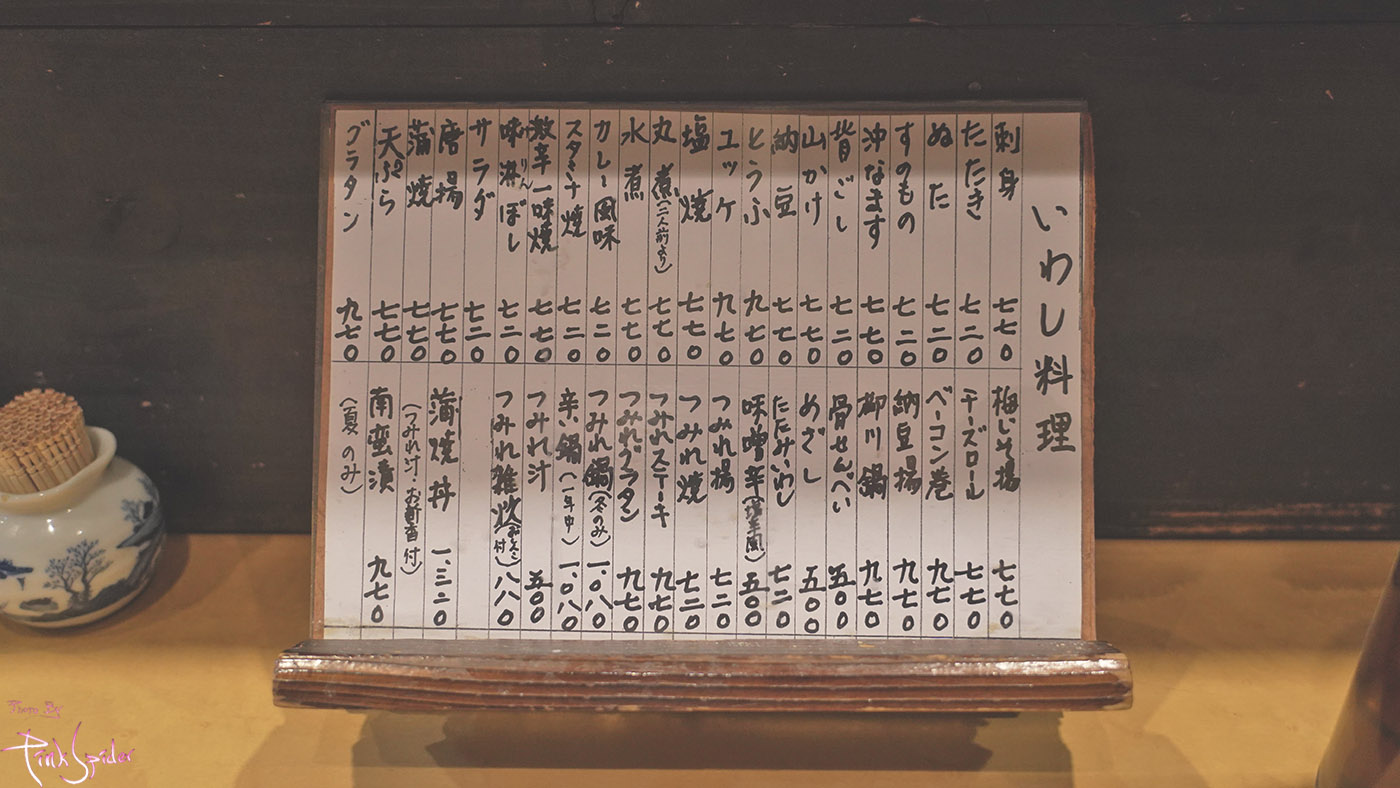 いわし料理
刺身 七七〇
たたき 七二〇
ぬた 七二〇
すのもの 七二〇
沖なます 七七〇
背ごし 七二〇
山かけ 七七〇
納豆 七七〇
とうふ 九七〇
ユッケ 九七〇
塩焼 七七〇
丸煮(二人前より) 七七〇
水煮 七七〇
カレー風味 七二〇
スタミナ焼 七二〇
激辛一味焼 七七〇
味淋ぼし みりん 七二〇
サラダ 七二〇
唐揚 七七〇
蒲焼 七七〇
天ぷら 七七〇
グラタン 九七〇
梅しそ揚 七七〇
チーズロール 七七〇
ベーコン巻 九七〇
納豆揚 九七〇
柳川鍋 九七〇
骨せんべい 五〇〇
めざし 五〇〇
たたみいわし 七二〇
味噌辛 五〇〇
つみれ揚 七二〇
つみれ焼 七二〇
つみれステーキ 九七〇
つみれグラタン 九七〇
つみれ鍋(冬のみ) 一.〇八〇
辛い鍋(一年中) 一.〇八〇
つみれ汁 五〇〇
つみれ雑炊 付) 八八〇
蒲焼丼 一.三二〇
(つみれ汁・お新香付)
南蛮漬 九七〇
(夏のみ)
Photo By
Pink Spider